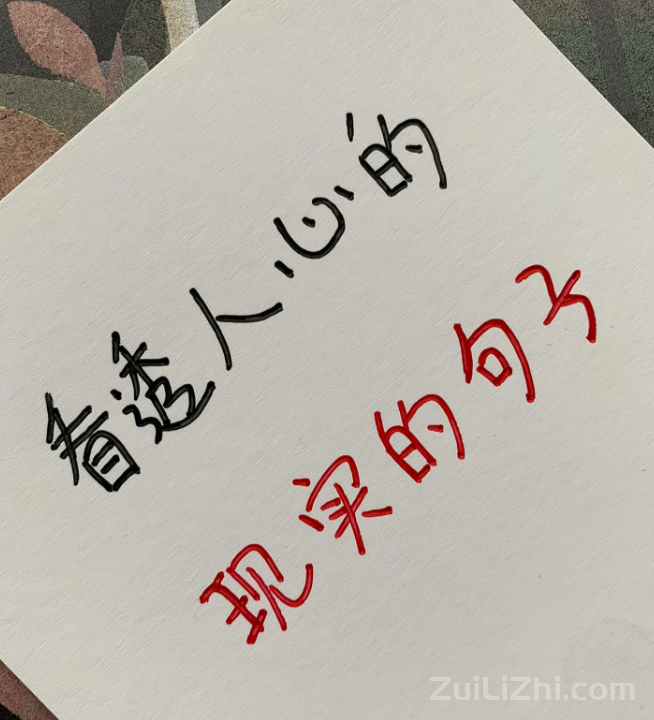 看透人心的
现实的句子
ZuiLiZhi.com